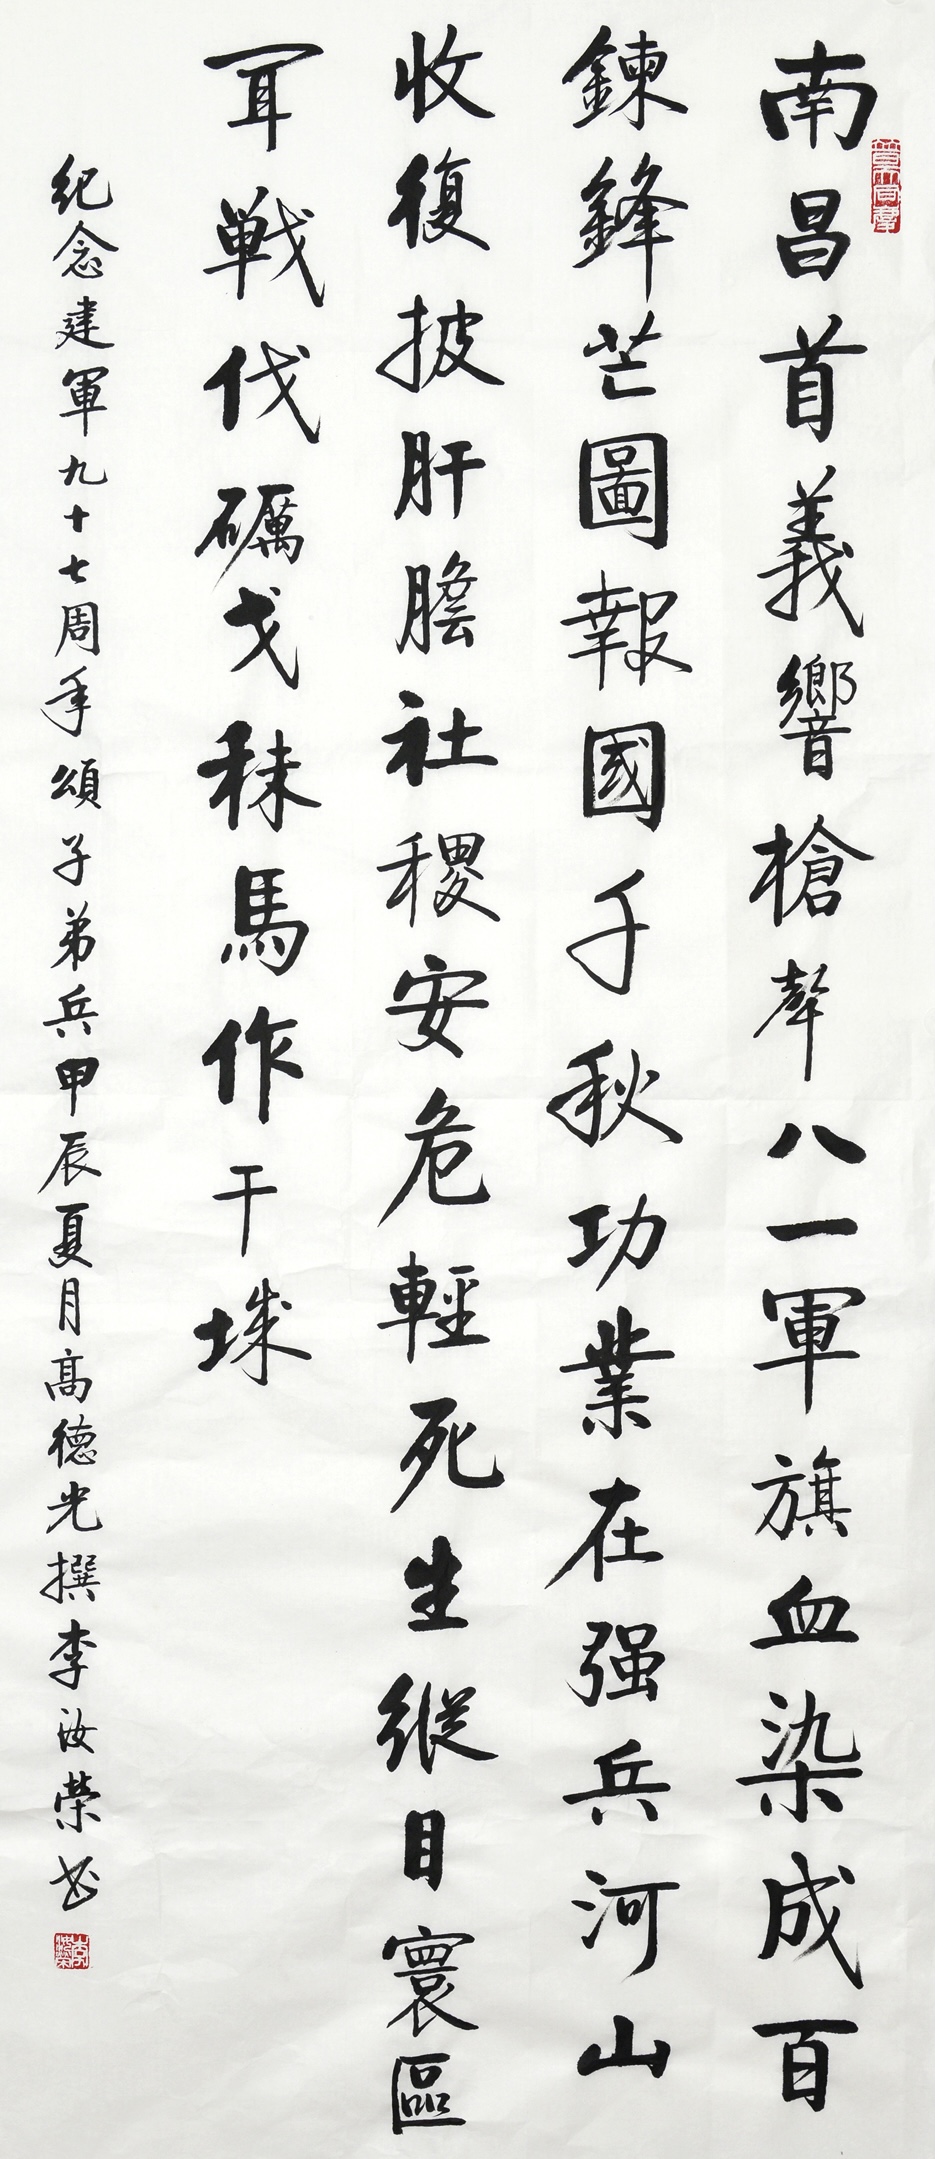 南昌首義響槍聲八一軍旗血染成百
鍊鋒芒圖報國千秋功業在强兵河山
收復披肝膽社稷安危輕死生縱目寰區
耳戦伐礪戈秣馬作干城
紀念建軍九十七周年頌子弟兵甲辰夏月髙德光撰李汝榮书
李汝榮